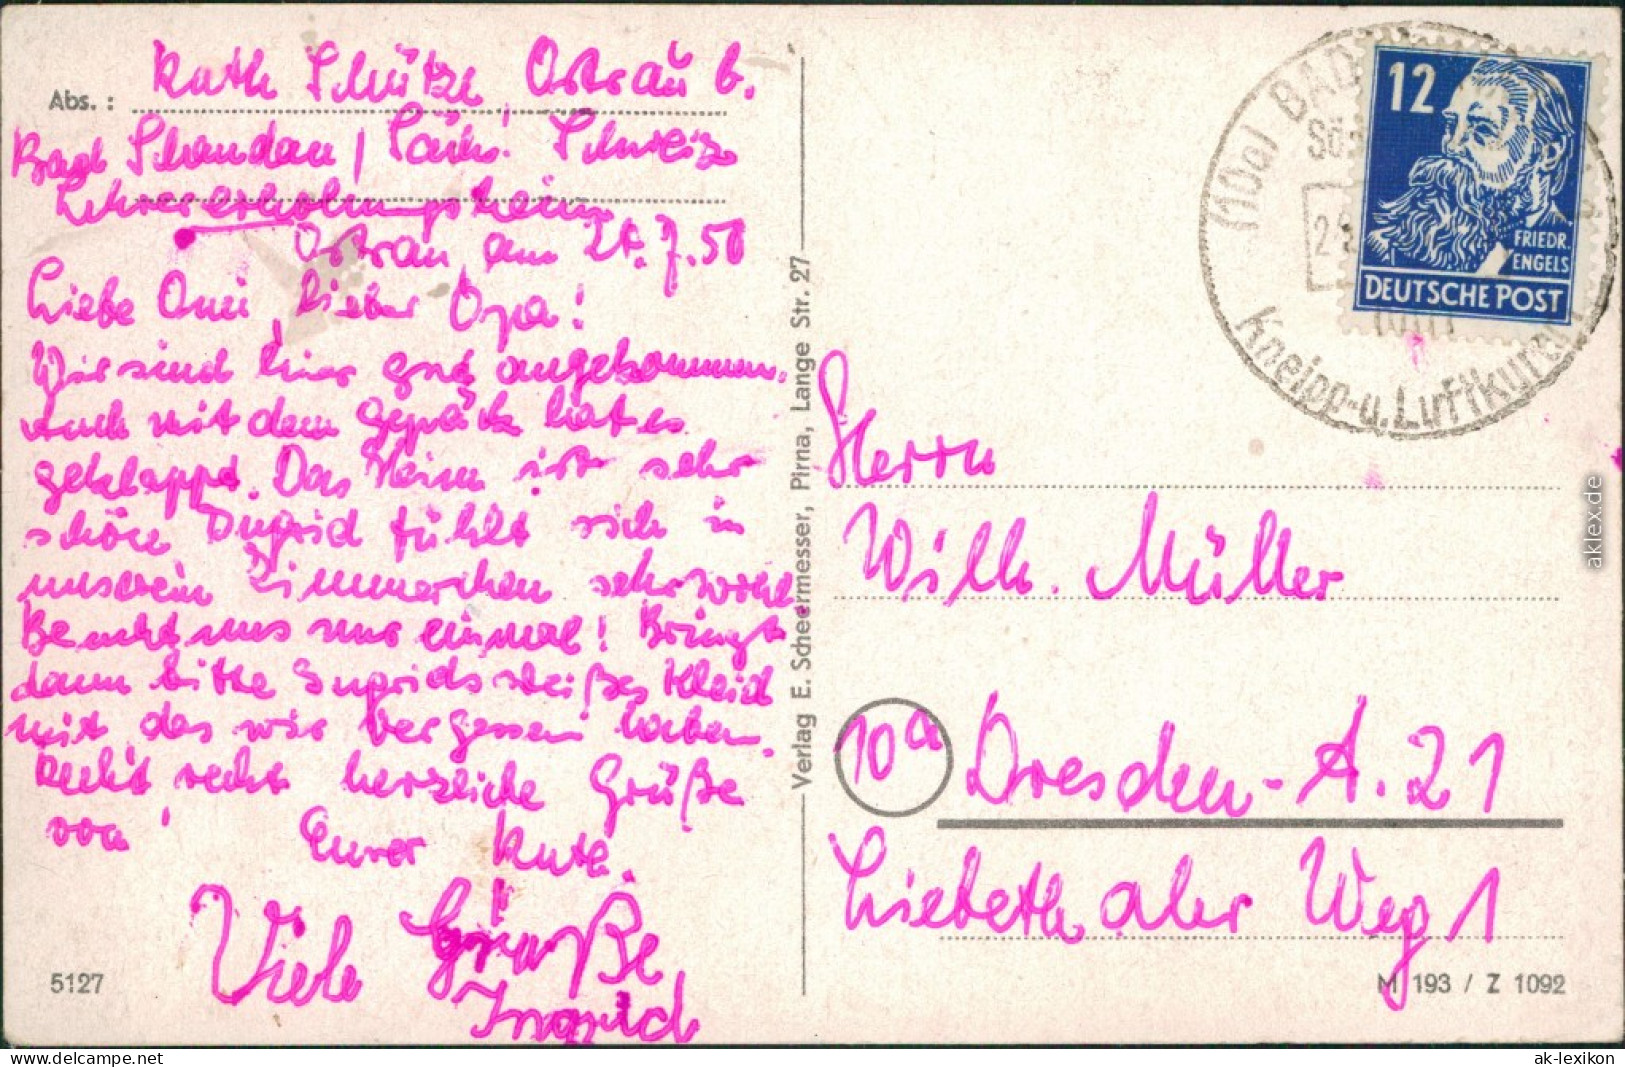 Abs.: Ruth Schütze, Ostrau b.
Bad Schandau / Sächs. Schweiz
Lehrererholungsheim
Ostrau, am 21.7.50
Liebe Omi, lieber Opa!
Wir sind hier gut angekommen.
Auch mit dem Gepäck hat es
geklappt. Das Heim ist sehr
schön Ingrid fühlt sich in
unserem Zimmerchen sehr wohl
Besucht uns nur einmal! Bringt
dann bitte Ingrids weißes Kleid
mit, das wir vergessen haben.
Recht, recht herzliche Grüße
von Eurer Ruth.
Viele Grüße
Ingrid
5127
Verlag E. Scheermesser, Pirna, Lange Str. 27
(10a) BAD
Kneipp- u. Luftkurort
12
FRIEDR.
ENGELS
DEUTSCHE POST
Herrn
Wilh. Müller
10a Dresden-A. 21
Liebethaler Weg 1
M 193 / Z 1092
aklex.de
www.delcampe.net
ak-lexikon